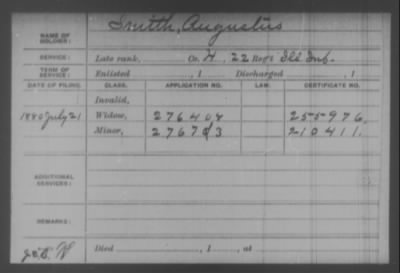 NAME OF SOLDIER: Smith, Augustus
SERVICE: Late rank, Co. H, 22 Reg't Ills Inf.
TERM OF SERVICE: Enlisted , 1 Discharged , 1
DATE OF FILING. CLASS. APPLICATION NO. LAW. CERTIFICATE NO.
Invalid,
1880 July 21 Widow, 276408 255976.
Minor, 276703 210411.
ADDITIONAL SERVICES:
REMARKS:
Died , 1 , at